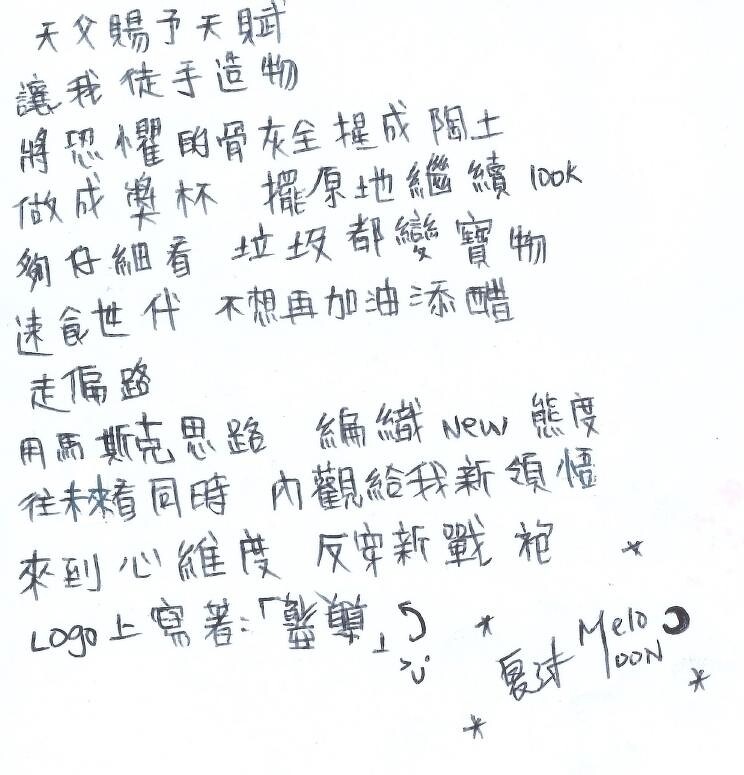 天父賜予天賦
讓我徒手造物
將恐懼的骨灰全握成陶土
做成獎杯 擺原地繼續 100K
夠仔細看 垃圾都變寶物
速食世代 不想再加油添醋
走偏路
用馬斯克思路 編織 New 態度
往未來看同時 內觀給我新領悟
來到心維度 反穿新戰袍
Logo上寫著:「 」
Melo
MOON